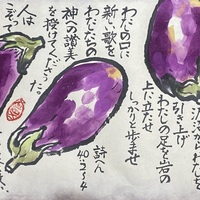 からわたしを
引き上げ
わたしの足を岩の
上に立たせ
しっかりと歩ませ
わたしの口に
新しい歌を
わたしたちの
神への讃美
を授けてくださった。
人は
こぞって
詩へん
40:3-4